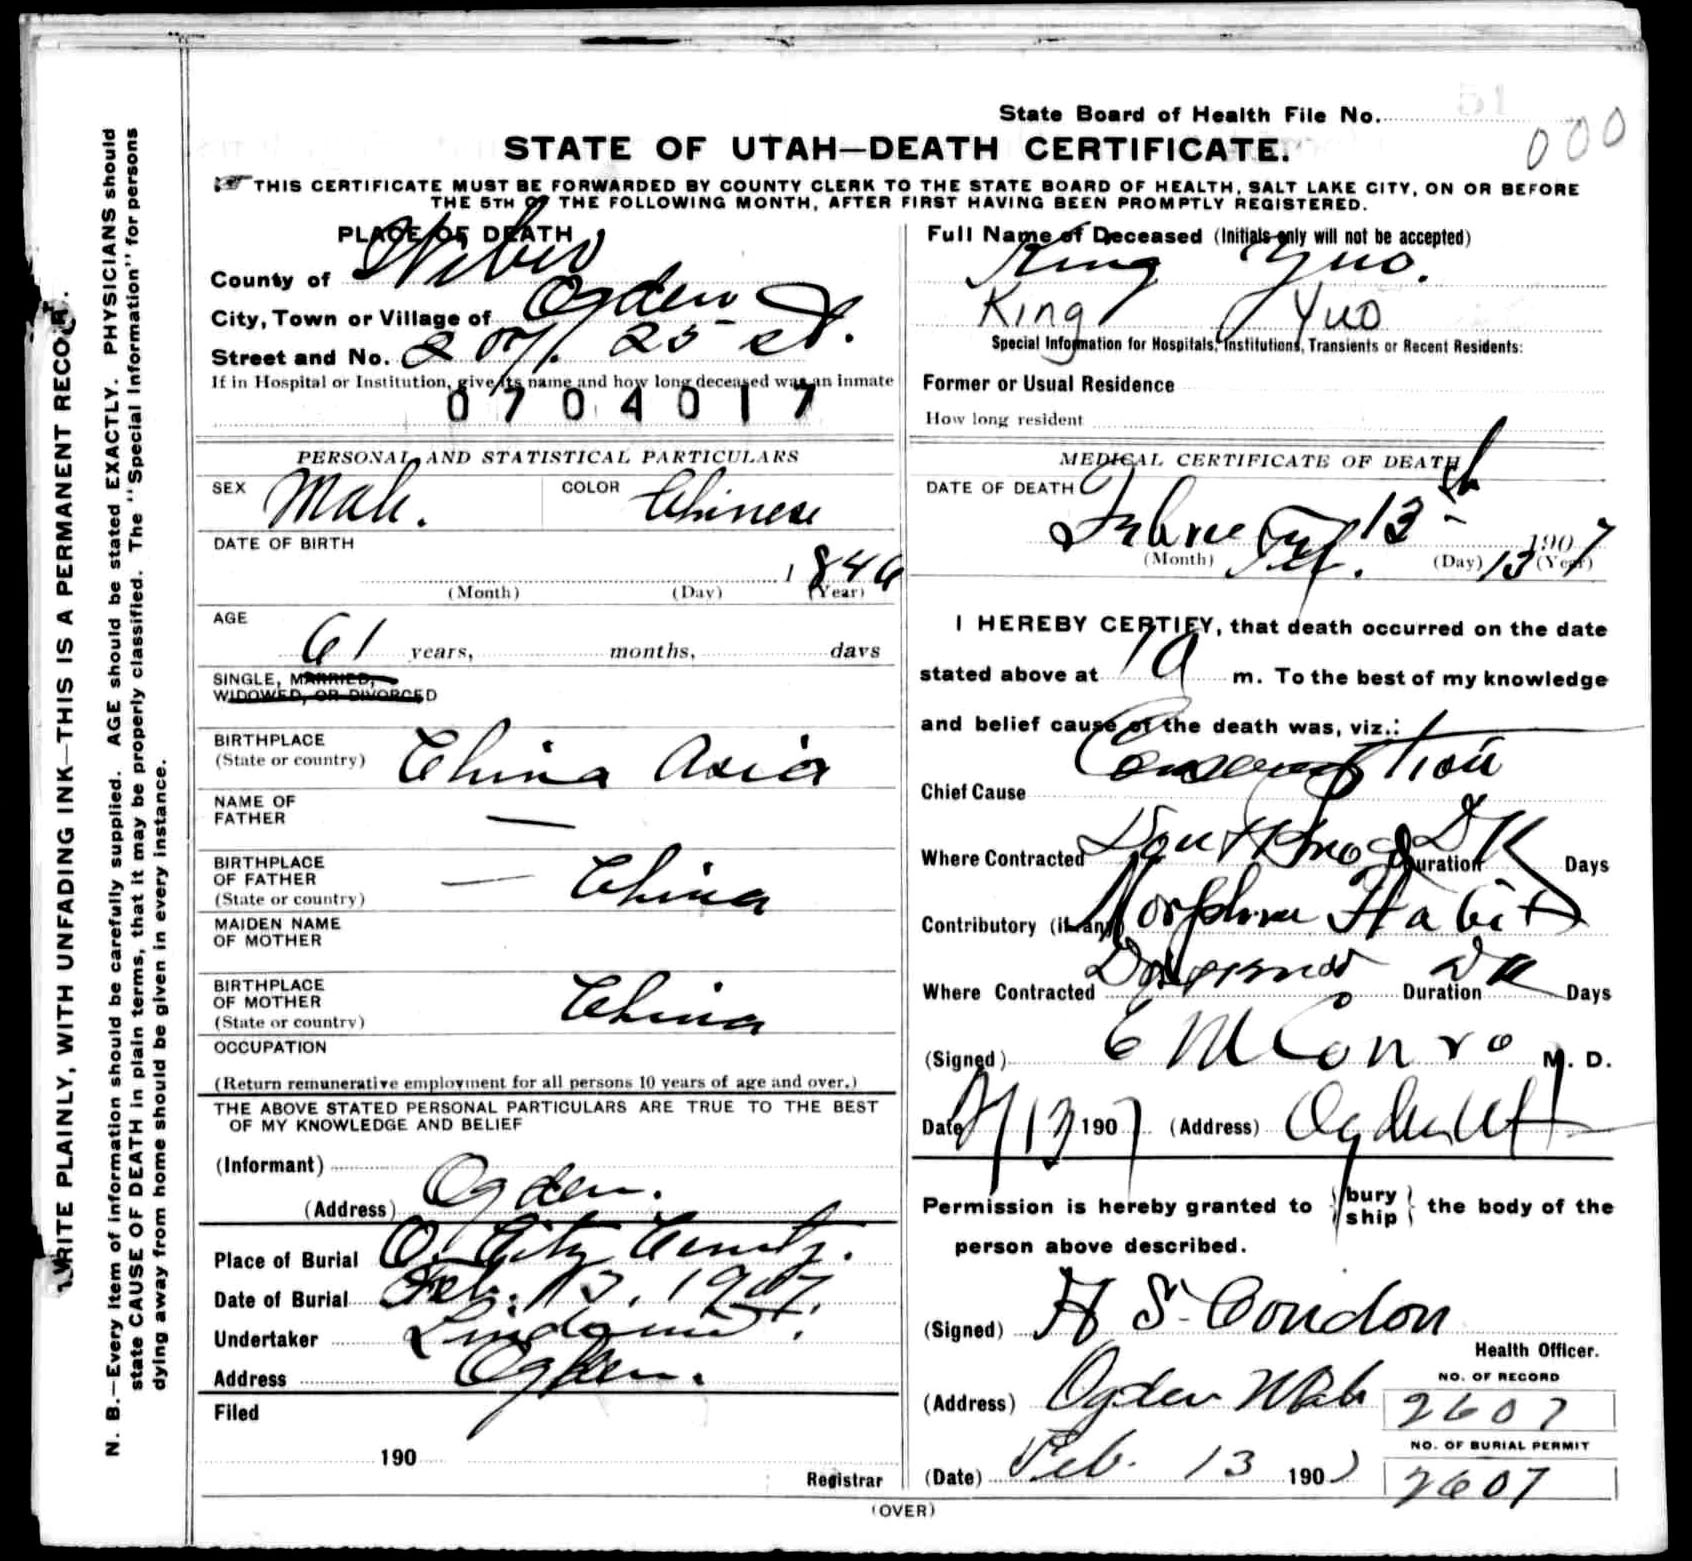 State Board of Health File No.
000
STATE OF UTAH—DEATH CERTIFICATE.
THIS CERTIFICATE MUST BE FORWARDED BY COUNTY CLERK TO THE STATE BOARD OF HEALTH, SALT LAKE CITY, ON OR BEFORE
THE 5TH OF THE FOLLOWING MONTH, AFTER FIRST HAVING BEEN PROMPTLY REGISTERED.
WRITE PLAINLY, WITH UNFADING INK—THIS IS A PERMANENT RECORD.
N. B.—Every item of information should be carefully supplied. AGE should be stated EXACTLY. PHYSICIANS should
state CAUSE OF DEATH in plain terms, that it may be properly classified. The "Special Information" for persons
dying away from home should be given in every instance.
PLACE OF DEATH
County of Weber
City, Town or Village of Ogden
Street and No. 207 25 st.
If in Hospital or Institution, give its name and how long deceased was an inmate
0704017
PERSONAL AND STATISTICAL PARTICULARS
SEX Male. COLOR Chinese
DATE OF BIRTH
1846
(Month) (Day) (Year)
AGE
61 years, months, days
SINGLE, MARRIED,
WIDOWED, OR DIVORCED
BIRTHPLACE China Asia
(State or country)
NAME OF
FATHER —
BIRTHPLACE
OF FATHER — China
(State or country)
MAIDEN NAME
OF MOTHER
BIRTHPLACE
OF MOTHER China
(State or country)
OCCUPATION
(Return remunerative employment for all persons 10 years of age and over.)
THE ABOVE STATED PERSONAL PARTICULARS ARE TRUE TO THE BEST
OF MY KNOWLEDGE AND BELIEF
(Informant)
(Address) Ogden.
Place of Burial O. City Cemty.
Date of Burial Feb. 13, 1907.
Undertaker Lindquist.
Address Ogden.
Filed
190
Registrar
Full Name of Deceased (Initials only will not be accepted)
King Yuo.
King Yuo
Special Information for Hospitals, Institutions, Transients or Recent Residents:
Former or Usual Residence
How long resident
MEDICAL CERTIFICATE OF DEATH
DATE OF DEATH
13th 1907
(Month) Feb. (Day) 13 (Year)
I HEREBY CERTIFY, that death occurred on the date
stated above at 1 a m. To the best of my knowledge
and belief cause of the death was, viz.:
Chief Cause Consumption
Where Contracted Dont Know Duration DK Days
Contributory (if any) Morphine Habit
Where Contracted Duration DK Days
(Signed) E M Conroy M. D.
Date 2/13 1907 (Address) Ogden Ut
Permission is hereby granted to bury
ship the body of the
person above described.
(Signed) H S Condon
Health Officer.
(Address) Ogden Utah
NO. OF RECORD
2607
NO. OF BURIAL PERMIT
2607
(Date) Feb. 13 1907
(OVER)